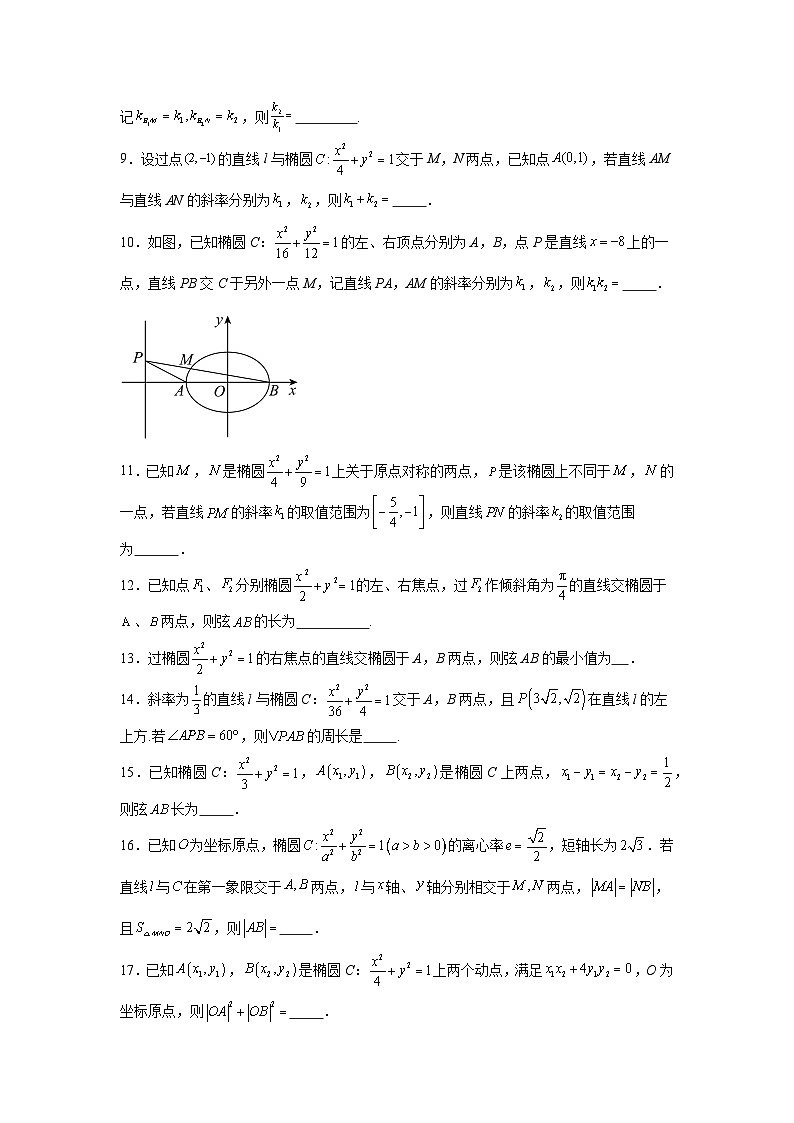 记k_{B₁M} = k₁, k_{B₁N} = k₂，则\frac{k₂}{k₁} = ________.
9．设过点(2,−1)的直线 l 与椭圆C:\frac{x²}{4}+y²=1交于 M，N 两点，已知点A(0,1)，若直线 AM
与直线 AN 的斜率分别为k₁，k₂，则k₁+k₂= _____．
10．如图，已知椭圆 C：\frac{x²}{16}+\frac{y²}{12}=1的左、右顶点分别为 A，B，点 P 是直线x=−8上的一
点，直线 PB 交 C 于另外一点 M，记直线 PA，AM 的斜率分别为k₁，k₂，则k₁k₂= _____．
y
P M
A O B x
11．已知M，N是椭圆\frac{x²}{4}+\frac{y²}{9}=1上关于原点对称的两点，P是该椭圆上不同于M，N的
一点，若直线PM的斜率k₁的取值范围为[−\frac{5}{4},−1]，则直线PN的斜率k₂的取值范围
为______．
12．已知点F₁、F₂分别椭圆\frac{x²}{2}+y²=1的左、右焦点，过F₂作倾斜角为\frac{π}{4}的直线交椭圆于
A、B两点，则弦AB的长为__________.
13．过椭圆\frac{x²}{2}+y²=1的右焦点的直线交椭圆于 A，B 两点，则弦 AB 的最小值为__．
14．斜率为\frac{1}{3}的直线 l 与椭圆 C：\frac{x²}{36}+\frac{y²}{4}=1交于 A，B 两点，且P(3√2,√2)在直线 l 的左
上方.若∠APB=60°，则▽PAB的周长是_____.
15．已知椭圆 C：\frac{x²}{3}+y²=1，A(x₁,y₁)，B(x₂,y₂)是椭圆 C 上两点，x₁−y₁=x₂−y₂=\frac{1}{2}，
则弦AB长为_____．
16．已知O为坐标原点，椭圆C:\frac{x²}{a²}+\frac{y²}{b²}=1(a>b>0)的离心率e=\frac{√2}{2}，短轴长为2√3．若
直线l与C在第一象限交于A,B两点，l与x轴、y轴分别相交于M,N两点，|MA|=|NB|，
且S_{△MNO}=2√2，则|AB|= _____．
17．已知A(x₁,y₁)，B(x₂,y₂)是椭圆 C：\frac{x²}{4}+y²=1上两个动点，满足x₁x₂+4y₁y₂=0，O 为
坐标原点，则|OA|²+|OB|²= _____．